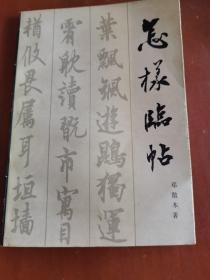 怎樣臨帖
邓散木 著
葉飄颻遊鵾獨運
霄耽讀翫市寓目
輶攸畏屬耳垣牆